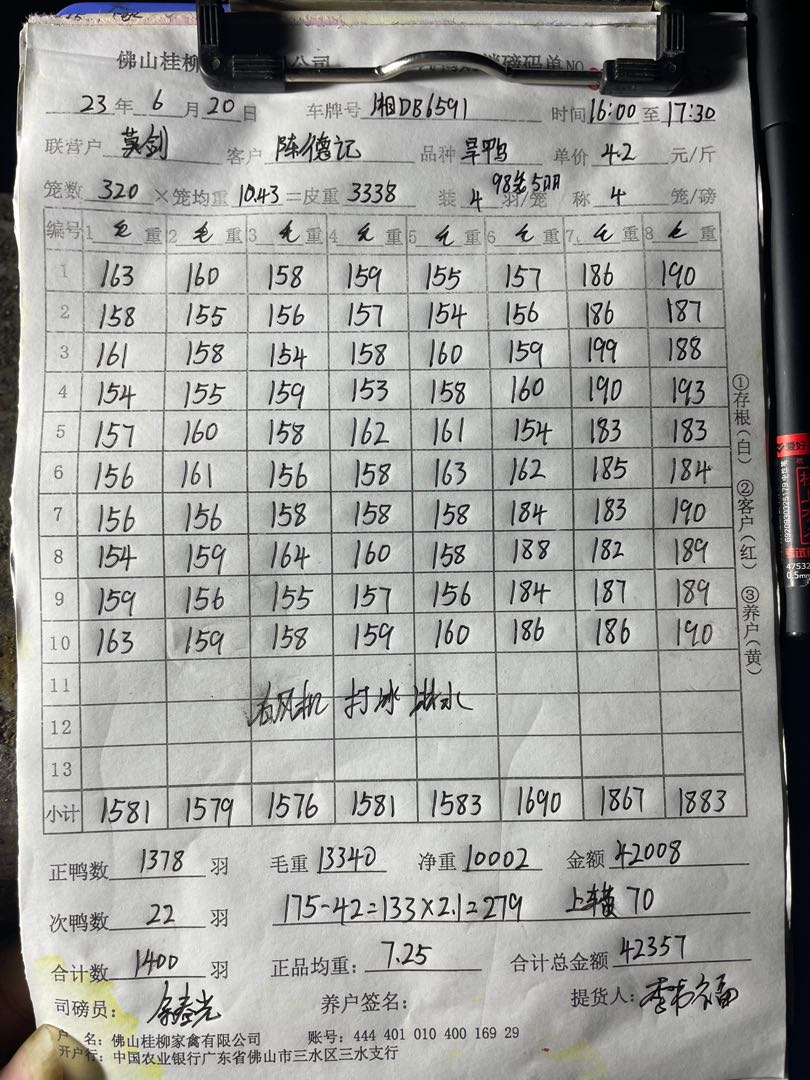 佛山桂柳 公司 磅码单NO
23年6月20日 车牌号 湘DB6591 时间16:00至17:30
联营户 莫剑 客户 陈德记 品种 旱鸭 单价 4.2 元/斤
笼数 320 ×笼均重 10.43 =皮重 3338 装 4 羽/笼 称 4 笼/磅
98笼5羽
编号 1 毛重 2 毛重 3 毛重 4 毛重 5 毛重 6 毛重 7 毛重 8 毛重
1 163 160 158 159 155 157 186 190
2 158 155 156 157 154 156 186 187
3 161 158 154 158 160 159 199 188
4 154 155 159 153 158 160 190 193
5 157 160 158 162 161 154 183 183
6 156 161 156 158 163 162 185 184
7 156 156 158 158 158 184 183 190
8 154 159 164 160 158 188 182 189
9 159 156 155 157 156 184 187 189
10 163 159 158 159 160 186 186 190
11
有风机 打冰 淋水
12
13
小计 1581 1579 1576 1581 1583 1690 1867 1883
①存根(白) ②客户(红) ③养户(黄)
正鸭数 1378 羽 毛重 13340 净重 10002 金额 42008
次鸭数 22 羽 175-42=133×2.1=279 上车 70
合计数 1400 羽 正品均重: 7.25 合计总金额 42357
司磅员: 养户签名: 提货人:
户 名: 佛山桂柳家禽有限公司 账号: 444 401 010 400 169 29
开户行: 中国农业银行广东省佛山市三水区三水支行
6920930325179
47532
0.5mm